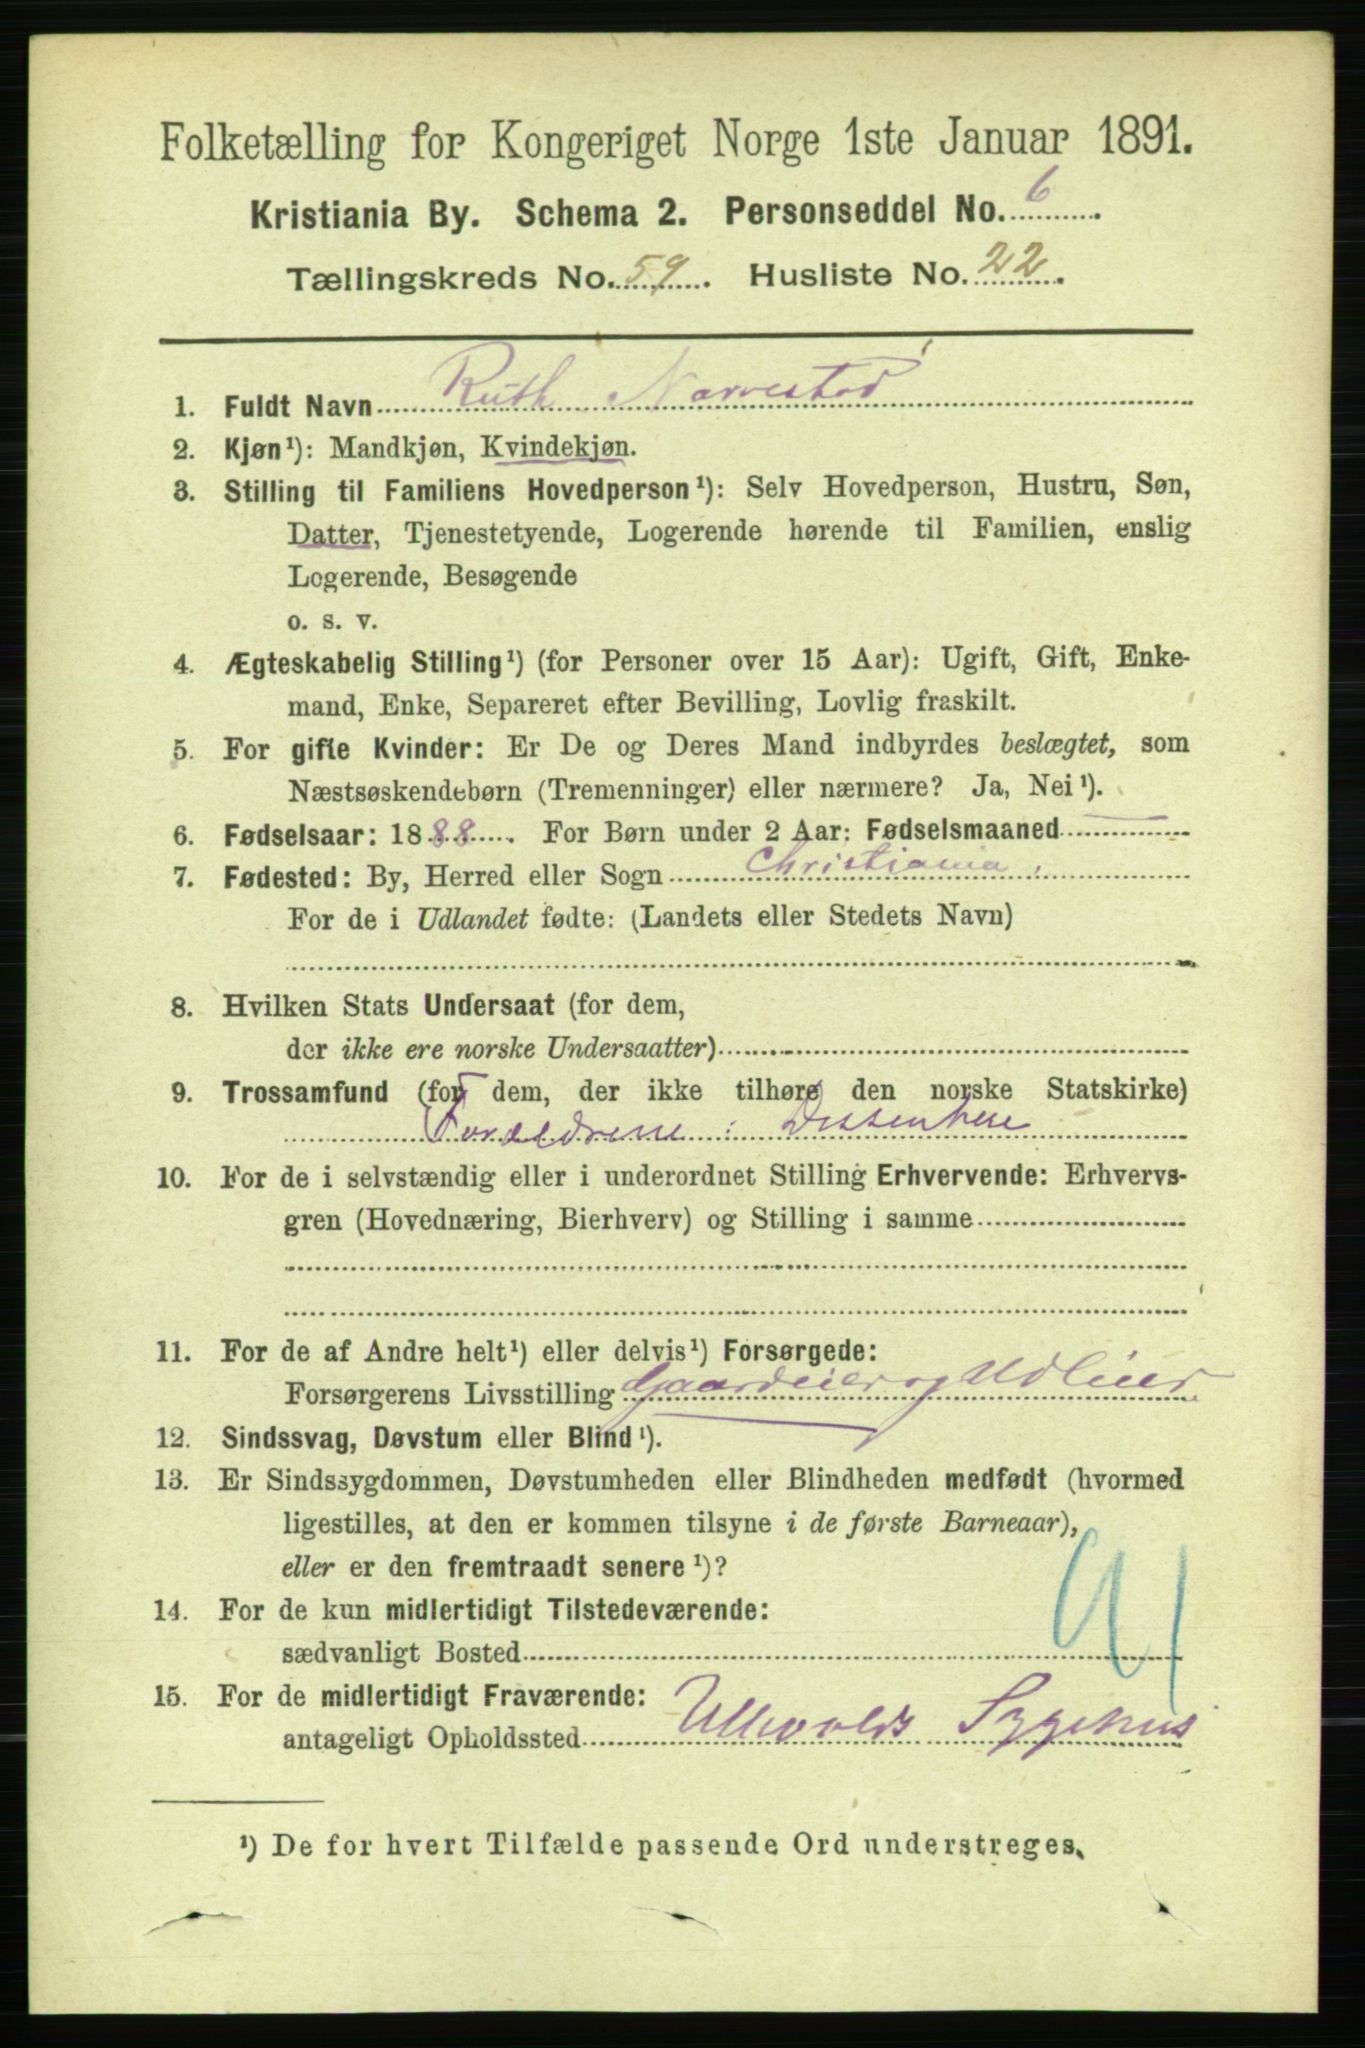 Folketælling for Kongeriget Norge 1ste Januar 1891.
Kristiania By. Schema 2. Personseddel No. 6.
Tællingskreds No. 59. Husliste No. 22.
1. Fuldt Navn Ruth Narvestad
2. Kjøn¹): Mandkjøn, Kvindekjøn.
3. Stilling til Familiens Hovedperson¹): Selv Hovedperson, Hustru, Søn,
Datter, Tjenestetyende, Logerende hørende til Familien, enslig
Logerende, Besøgende
o. s. v.
4. Ægteskabelig Stilling¹) (for Personer over 15 Aar): Ugift, Gift, Enke-
mand, Enke, Separeret efter Bevilling, Lovlig fraskilt.
5. For gifte Kvinder: Er De og Deres Mand indbyrdes beslægtet, som
Næstsøskendebørn (Tremenninger) eller nærmere? Ja, Nei¹).
6. Fødselsaar: 1888. For Børn under 2 Aar: Fødselsmaaned —
7. Fødested: By, Herred eller Sogn Christiania.
For de i Udlandet fødte: (Landets eller Stedets Navn)
8. Hvilken Stats Undersaat (for dem,
der ikke ere norske Undersaatter)
9. Trossamfund (for dem, der ikke tilhøre den norske Statskirke)
Forældrene: Dissentere
10. For de i selvstændig eller i underordnet Stilling Erhvervende: Erhvervs-
gren (Hovednæring, Bierhverv) og Stilling i samme
11. For de af Andre helt¹) eller delvis¹) Forsørgede:
Forsørgerens Livsstilling Gaardeier og Udleier
12. Sindssvag, Døvstum eller Blind¹).
13. Er Sindssygdommen, Døvstumheden eller Blindheden medfødt (hvormed
ligestilles, at den er kommen tilsyne i de første Barneaar),
eller er den fremtraadt senere¹)?
14. For de kun midlertidigt Tilstedeværende:
sædvanligt Bosted
91
15. For de midlertidigt Fraværende:
antageligt Opholdssted Ullevolds Sygehus
¹) De for hvert Tilfælde passende Ord understreges.